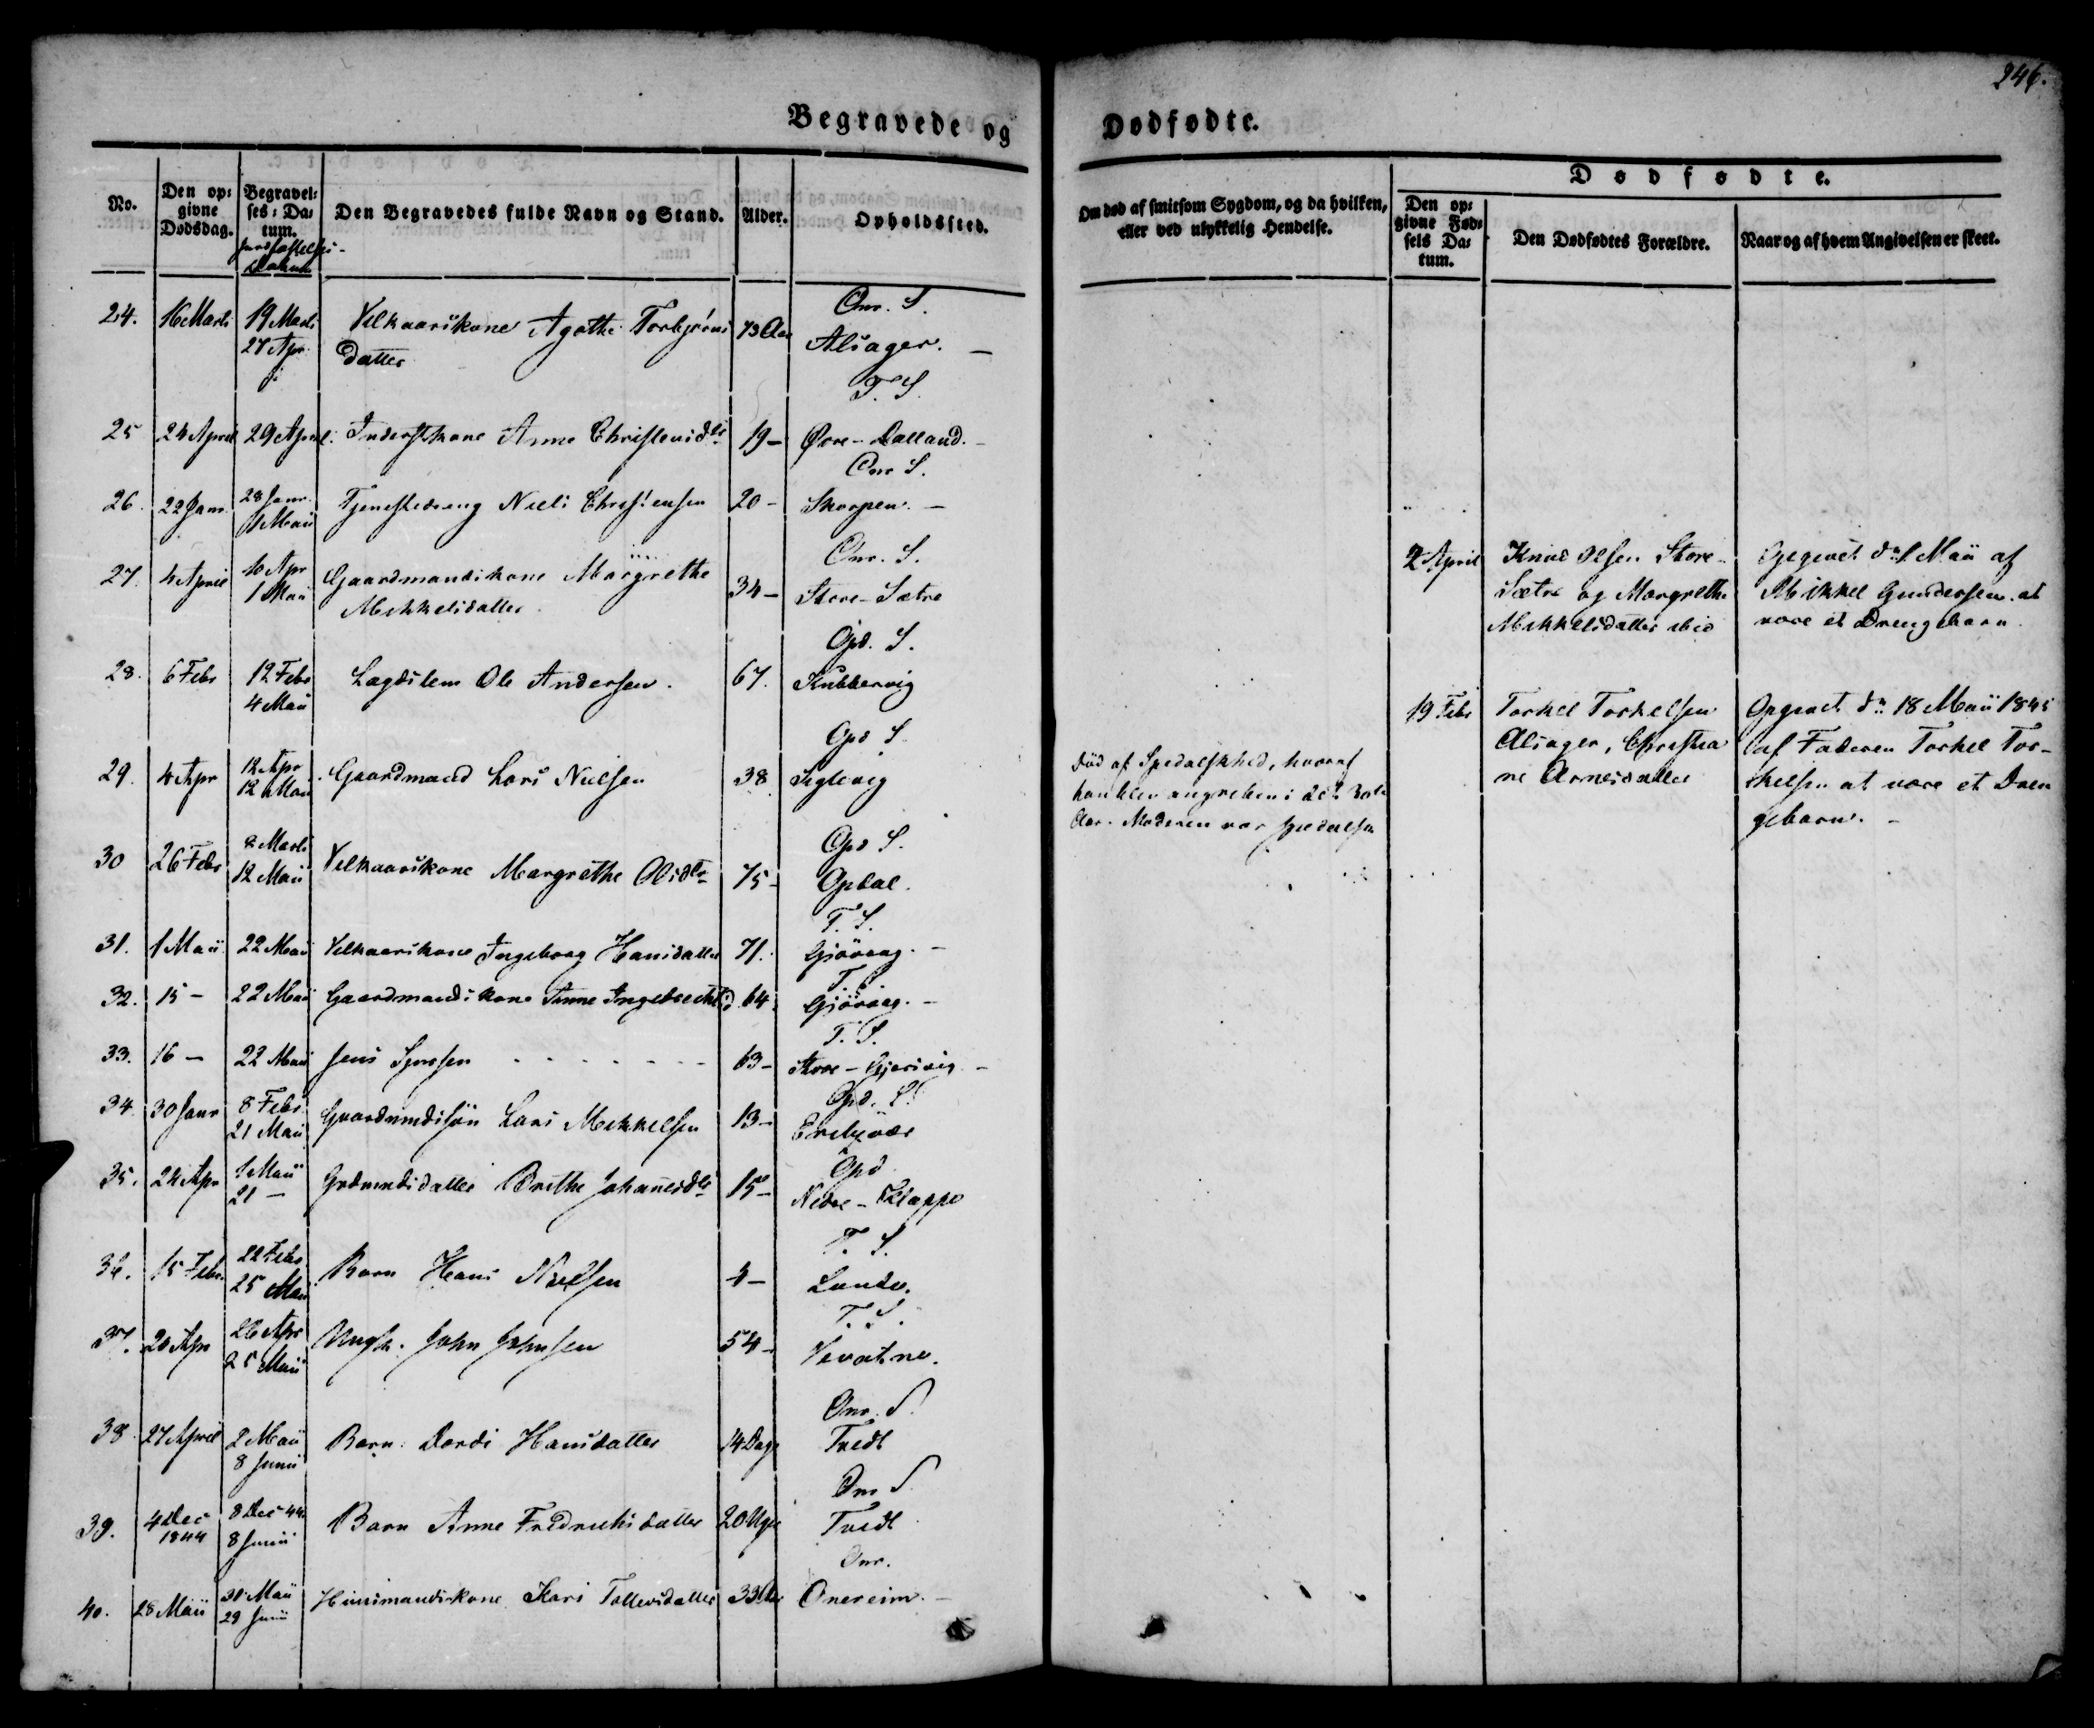 246.
Begravede og Dødfødte.
No.
Den opgivne Dødsdag.
Begravelses-Datum.
Den Begravedes fulde Navn og Stand.
Alder.
Opholdssted.
Om død af smitsom Sygdom, og da hvilken, eller ved ulykkelig Hendelse.
Dødfødte.
Den opgivne Fødsels Datum.
Den Dødfødtes Forældre.
Naar og af hvem Angivelsen er skeet.
Onr. S.
24. 16 Marts 19 Marts Vilkaarskone Agathe Torbjørns 73 Aar Alsager. –
27 Apr. datter
T. S.
25 24 April 29 April Inderstkone Anne Christensdtr 19 – Øvre-Dalland. –
Onr S.
26. 22 Janr. 28 Janr. Tjenestedreng Niels Christensen 20 – Skorpen. –
1 Maii
Onr. S.
27. 4 April 10 Apr Gaardmandskone Margrethe 34 – Store-Sætre
1 Maii Mikkelsdatter
Opd. S.
28. 6 Febr 12 Febr Lægdslem Ole Andersen. 67. Kubbervig
4 Maii
Opd S.
29. 4 Apr 12 Apr Gaardmand Lars Nielsen 38 Siglevig
12 Maii
Opd S.
30 26 Febr 8 Marts Vilkaarskone Margrethe Olsdtr 75 – Opdal.
12 Maii
T. S.
31. 1 Maii 22 Maii Vilkaarskone Ingeborg Hansdatter 71. Gjøvaag. –
T. S.
32. 15 – 22 Maii Gaardmandskone Anne Ingebrechtsd 64. Gjøvaag. –
T. S.
33. 16 – 22 Maii Jens 63 – Store-Gjersvig –
Opd. S.
34. 30 Janr 8 Febr Gaardmdssøn Lars Mikkelsen 13 –
21 Maii
Opd
35. 24 Apr 1 Maii Grdmndsdatter Brithe Johanesdtr 15 – Nedre-Klappe
21 –
T. S.
36. 15 Febr. 22 Febr Barn Hans Nielsen 4 – Lunde.
25 Maii
T. S.
37. 20 Apr 26 Apr Ungk. John Johnsen 54 – Vevatne.
25 Maii
Onr. S.
38 27 April 2 Maii Barn Dordi Hansdatter 14 Dage Tvedt
8 Junii
Onr S.
39. 4 Dec 1844 8 Dec 44 Barn Anne Fredrichsdatter 20 Uger Tvedt
8 Junii
Onr.
40. 28 Maii 31 Maii Huusmandskone Kari Tollevsdatter 33 Aar Onereim. –
29 Junii
Død af Spedalskhed, hvoraf
han blev angreben i
Aar. Moderen var spedalsk
2 April Knud Olsen Store-
Sætre og Margrethe
Mikkelsdatter ibid
Opgivet dn 1 Maii af
Mikkel Gundersen at
være et Drengebarn.
19 Febr Torkel Torkelsen
Alsager, Christia
ne Arnesdatter
Opgivet dn 18 Maii 1845
af Faderen Torkel Tor-
kelsen at være et Dren
gebarn. –